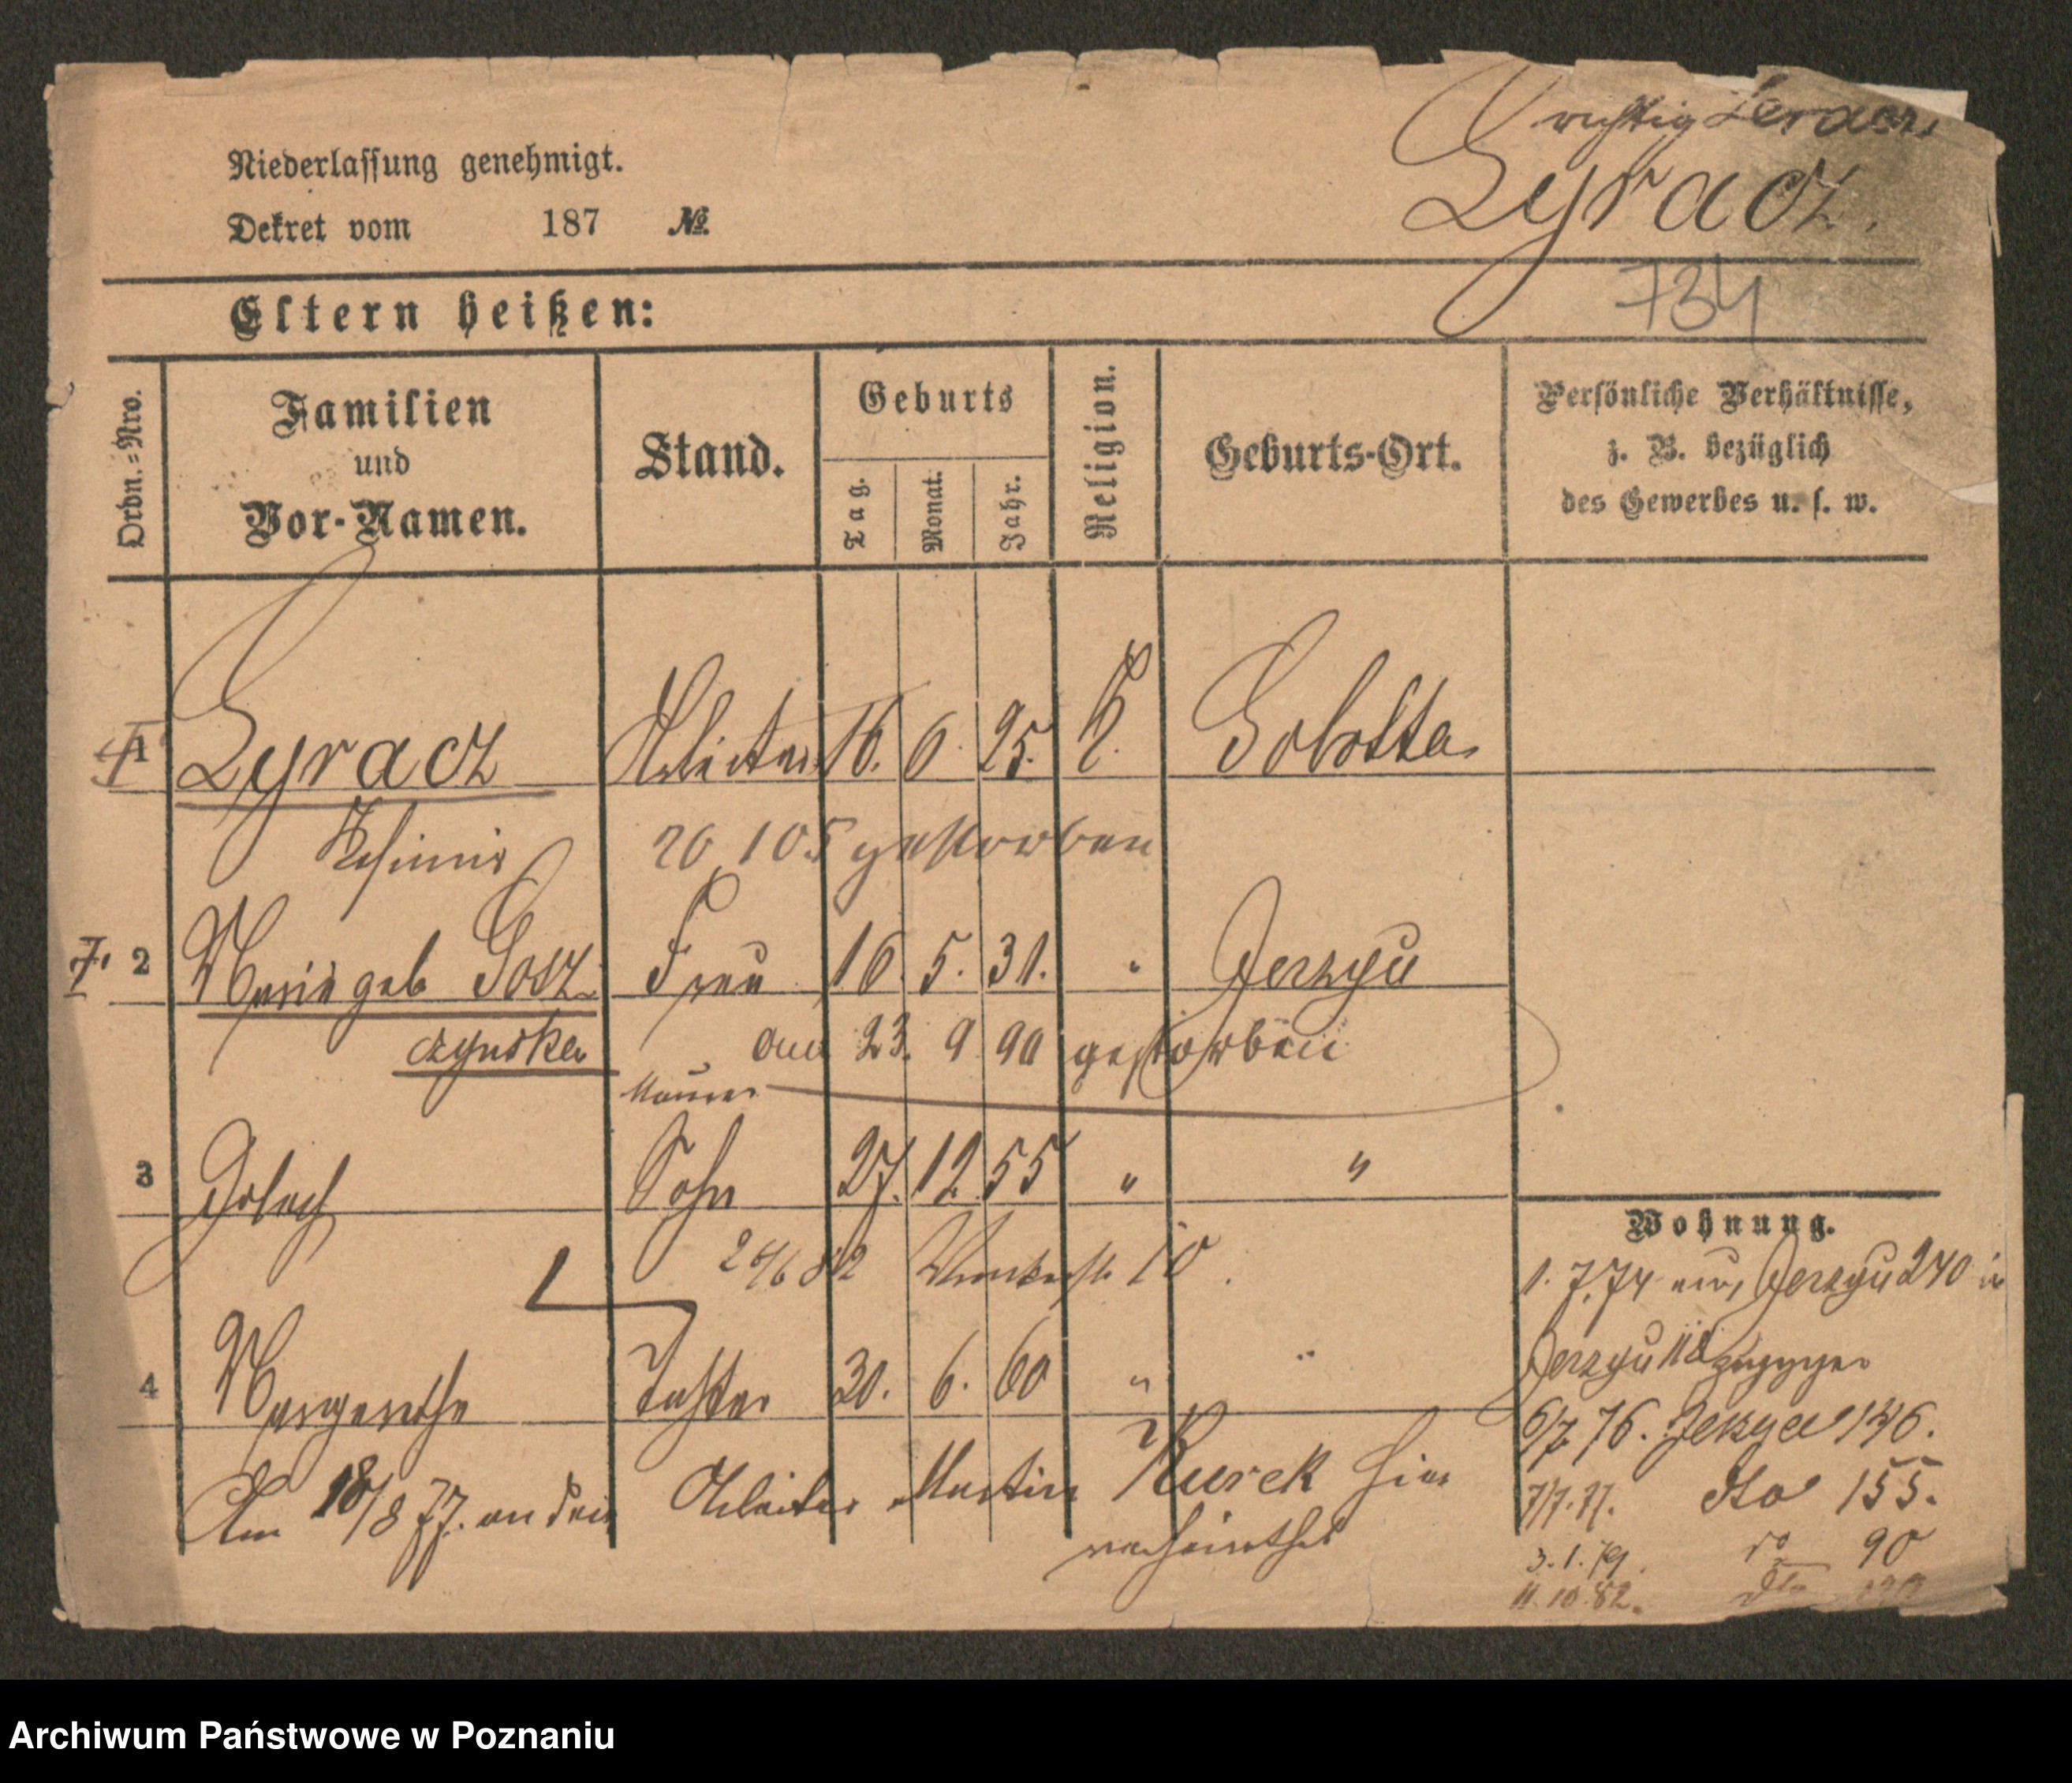 richtig Leracz
Lyracz.
Niederlassung genehmigt.
Dekret vom 187 №
734
Eltern heißen:
Ordn.=Nro.
Familien
und
Vor-Namen.
Stand.
Geburts
Tag.
Monat.
Jahr.
Religion.
Geburts-Ort.
Persönliche Verhältnisse,
z. B. bezüglich
des Gewerbes u. s. w.
1 Lyracz Arbeiter 16. 6. 25. K.
Kasimir 20 1 05 gestorben
2 Marie geb Gosz Frau 16. 5. 31. " Jerzyu
czynska am 23. 9 90 gestorben
Maurer
3 Sohn 27. 12. 55 " "
10.
4 Margarethe Tochter 30. 6. 60 " "
Am 18/8 77. an den Arbeiter Martin Kurek hier
verheirathet
Wohnung.
1. 7. 74 aus Jerzyu 240 in
Jerzyu 118
6/7 76. Jerzyce 146.
7/7. 77. dto 155.
3. 1. 79. do 90
11. 10. 82. dto
Archiwum Państwowe w Poznaniu